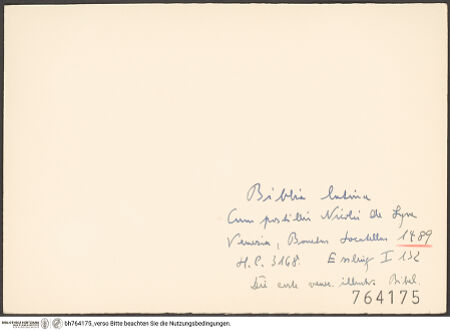 Biblia latina
Cum postillis Nicolai de Lyra
Venezia, Bonetus Locatellus 1489
H.C. 3168. Essling I 132
Die erste venez. illustr. Bibel.
764175
bh764175,verso Bitte beachten Sie die Nutzungsbedingungen.